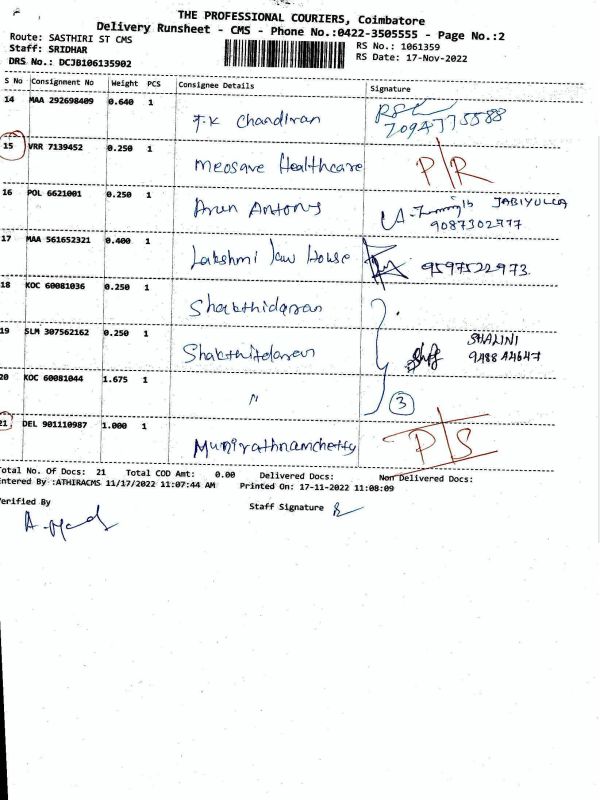 THE PROFESSIONAL COURIERS, Coimbatore
Delivery Runsheet - CMS - Phone No.:0422-3505555 - Page No.:2
Route: SASTHIRI ST CMS
RS No.: 1061359
Staff: SRIDHAR
RS Date: 17-Nov-2022
DRS No.: DCJB106135902
S No Consignment No Weight PCS Consignee Details Signature
14 MAA 292698409 0.640 1
F.K Chandiran 7094775588
15 VRR 7139452 0.250 1
Meosave Healthcare P/R
16 POL 6621001 0.250 1
Arun Antony JABIYULLA
9087302777
17 MAA 561652321 0.400 1
Lakshmi Law House 9597522973
18 KOC 60081036 0.250 1
Shakthidaran
19 SLM 307562162 0.250 1
Shakthitdaran SHALINI
20 KOC 60081044 1.675 1
" 3
21 DEL 901110987 1.000 1
Munirathnamchetty P/S
Total No. Of Docs: 21 Total COD Amt: 0.00 Delivered Docs: Non Delivered Docs:
Entered By :ATHIRACMS 11/17/2022 11:07:44 AM Printed On: 17-11-2022 11:08:09
Verified By
Staff Signature